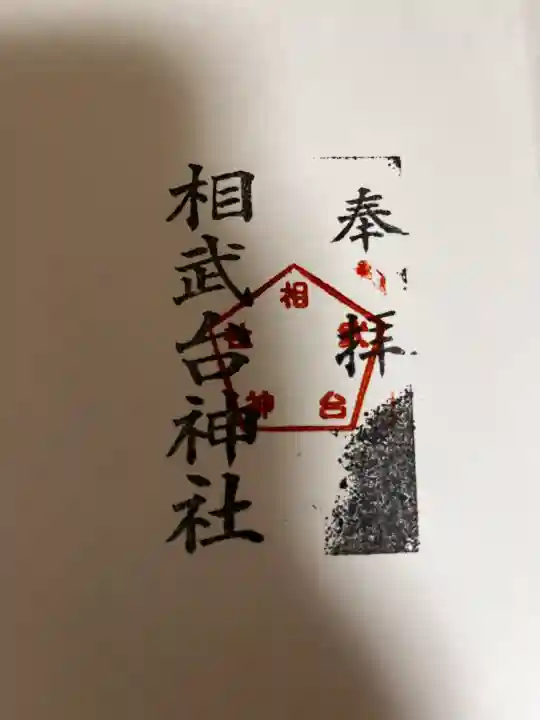 奉拝
相武台神社
相
武
台
神